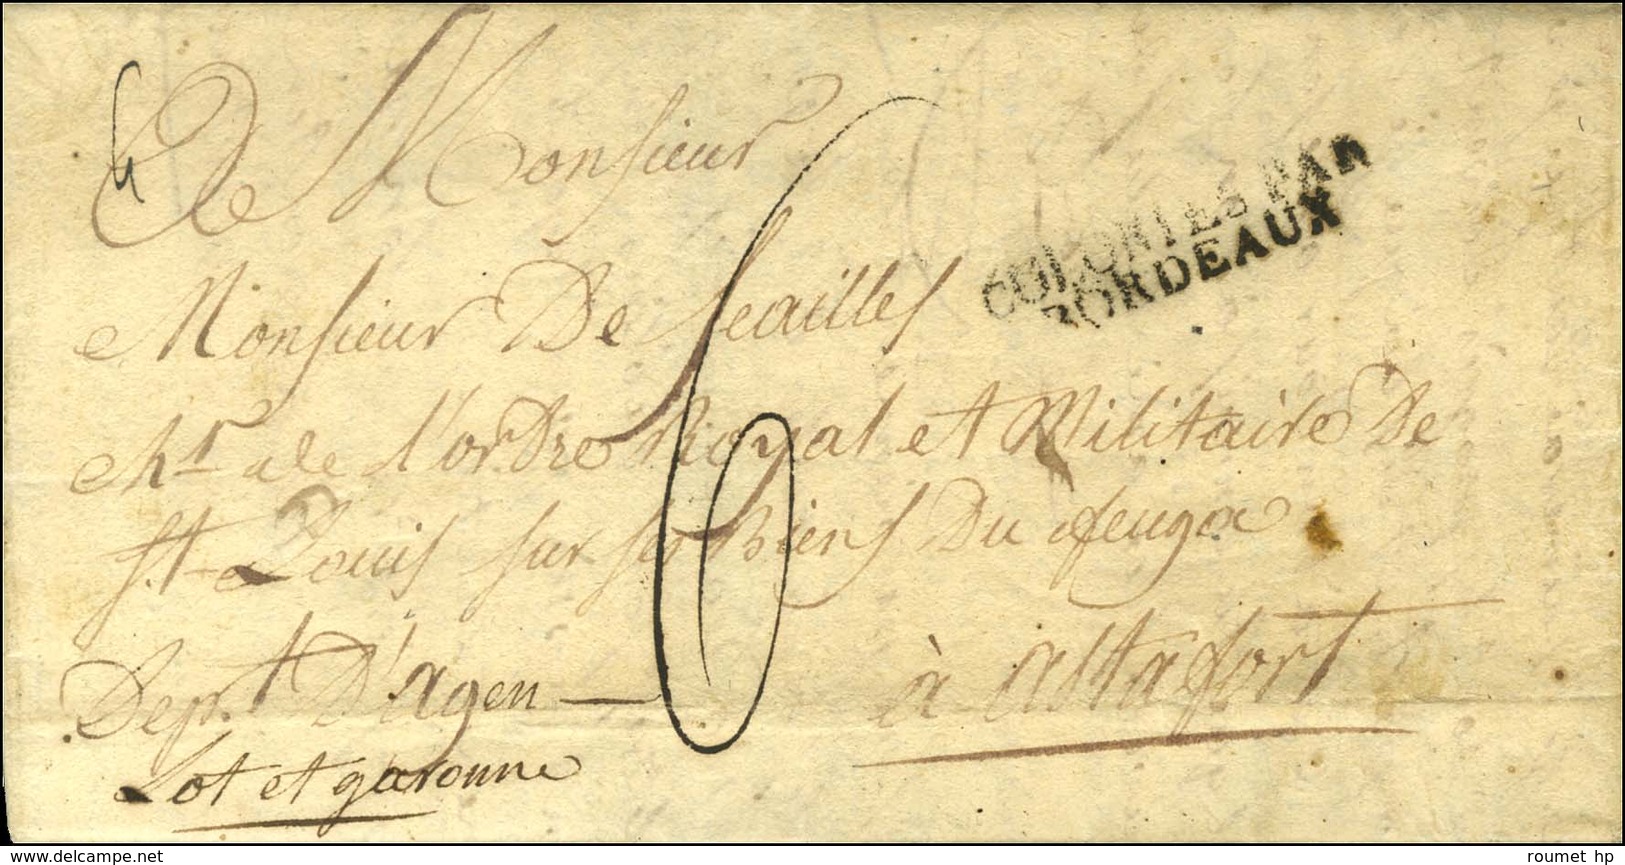 A Monsieur
Monsieur De Seailles
chr de l'ordre Royal et Militaire De
St Louis sur ses Biens Du feuga
Dept D'Agen — à astafort
Lot et garonne
COLONIES PAR
BORDEAUX
6
roumet hp
delcampe.net